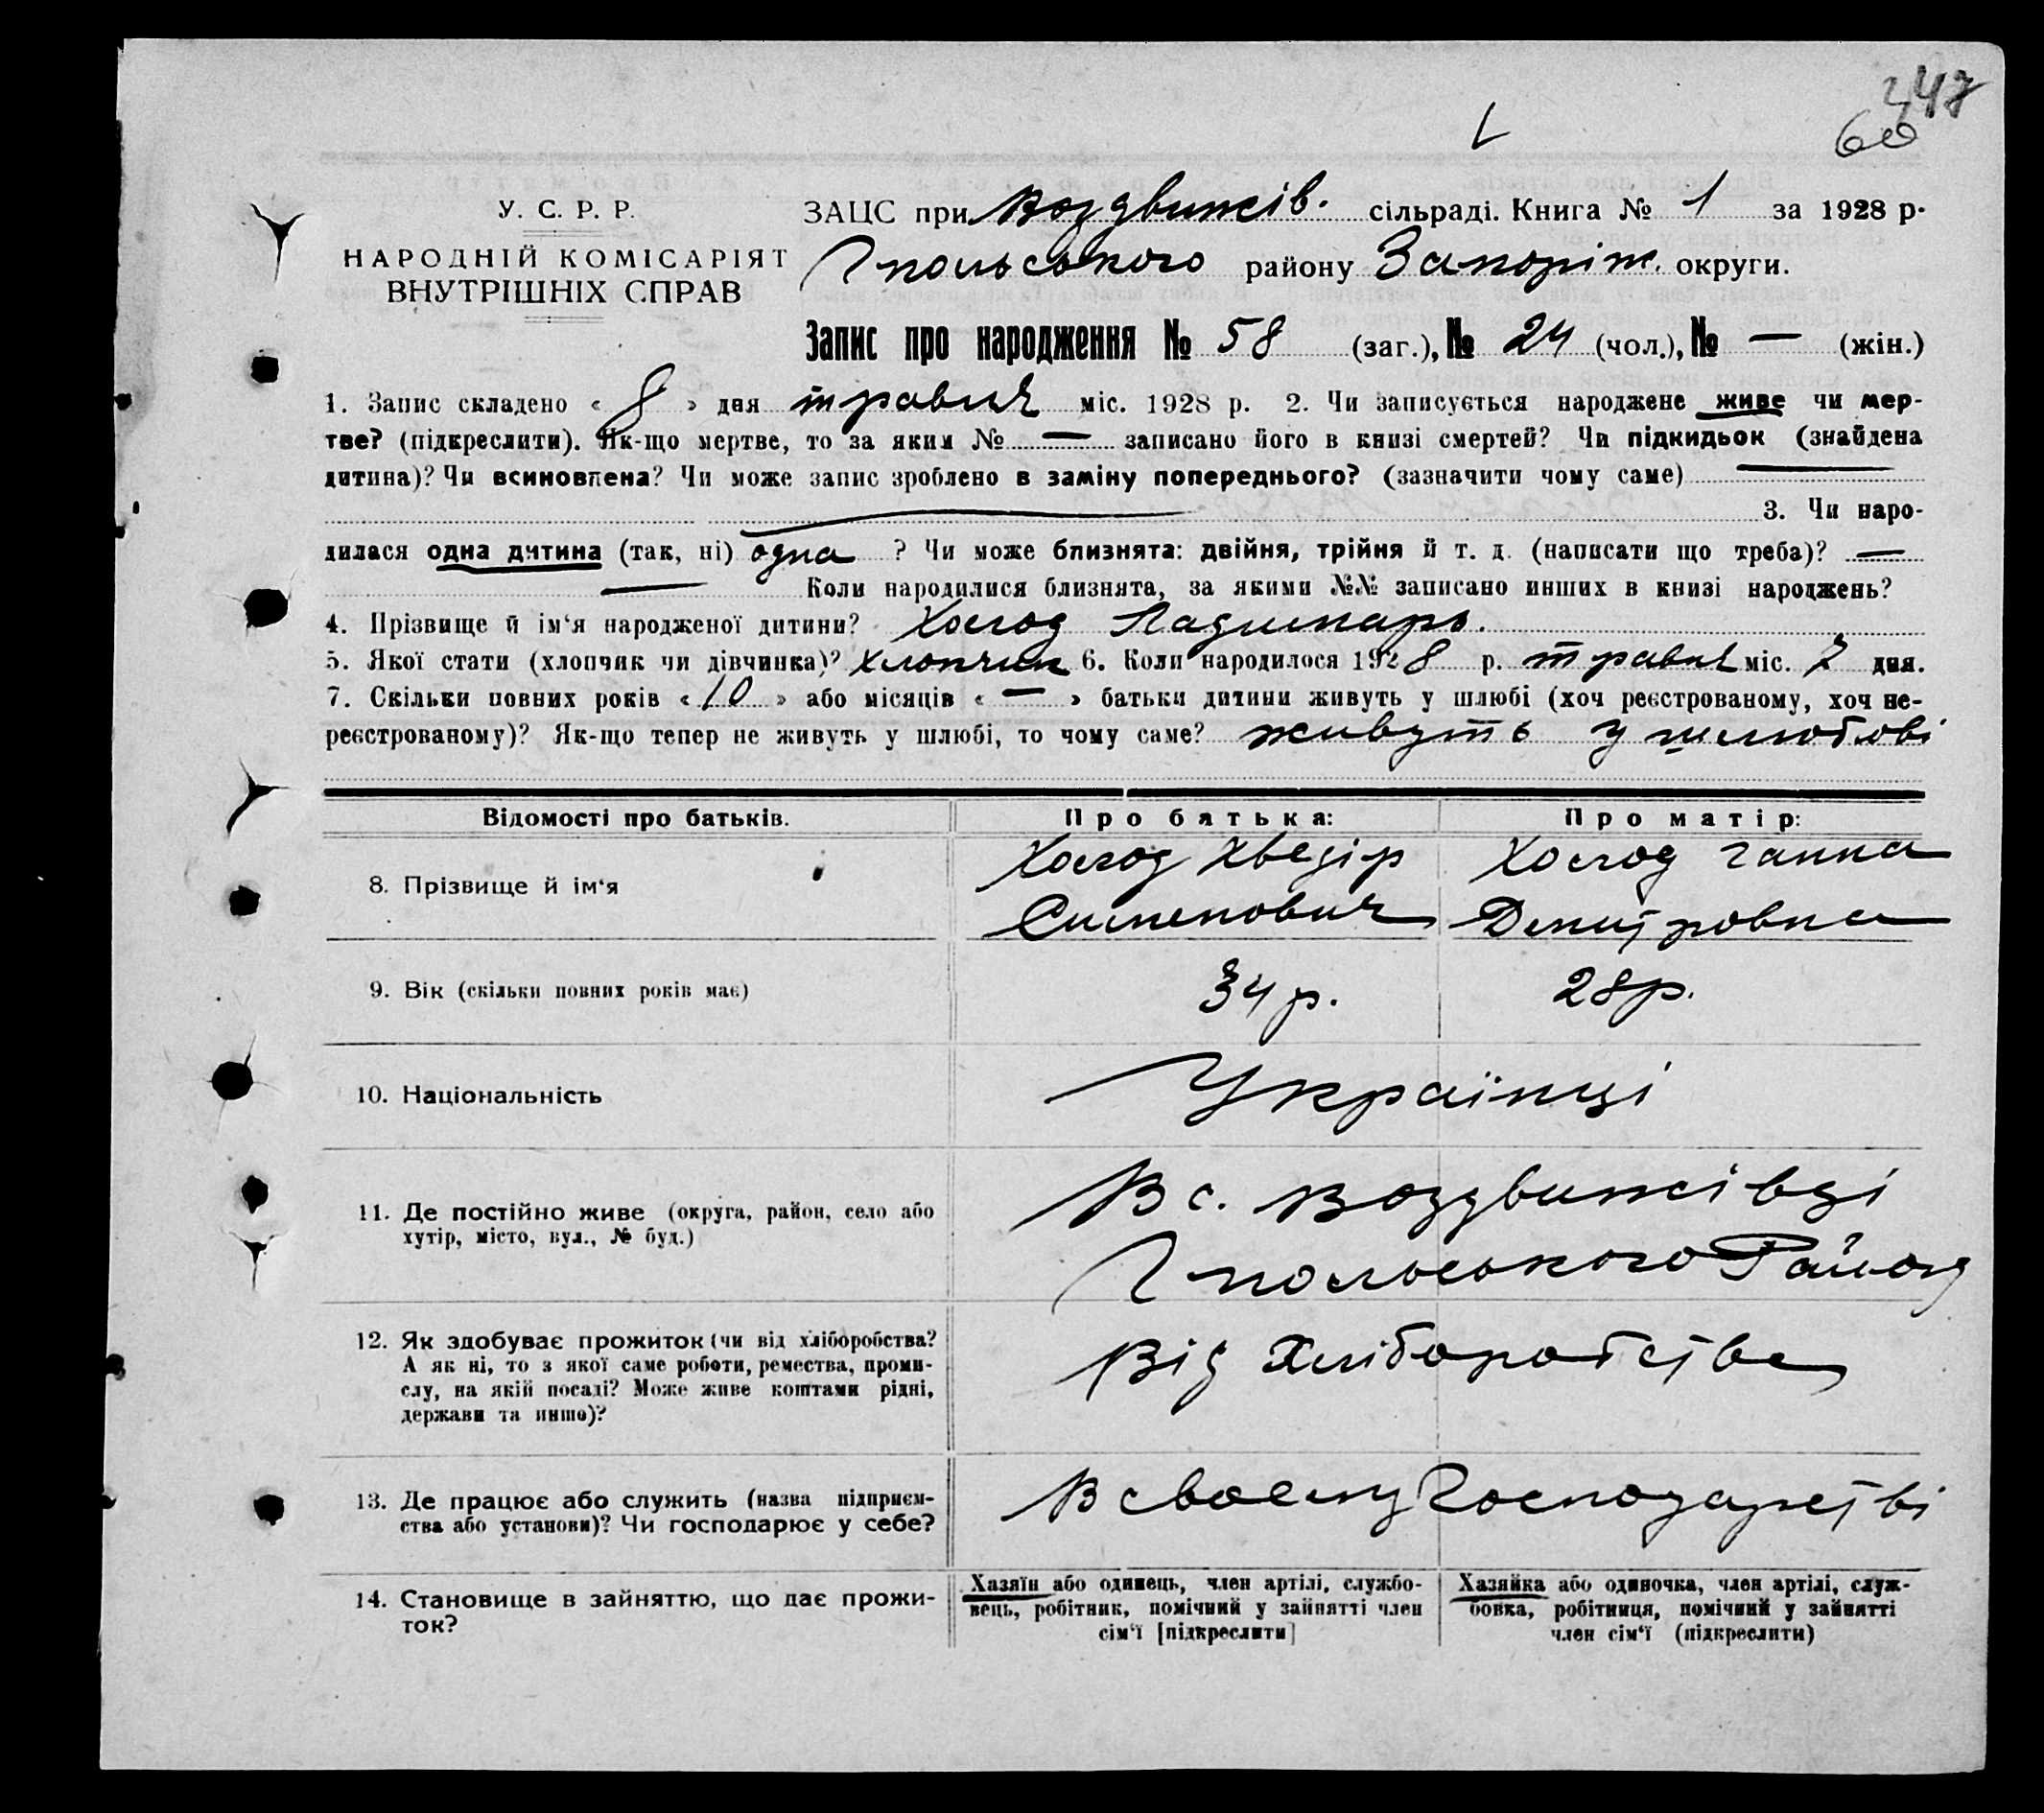 347
60
У. С. Р. Р.
НАРОДНІЙ КОМІСАРІЯТ
ВНУТРІШНІХ СПРАВ
ЗАЦС при Воздвижів. сільраді. Книга № 1 за 1928 р.
Гпольського району Запоріж. округи.
Запис про народження № 58 (заг.), № 24 (чол.), № — (жін.)
1. Запис складено « 8 » дня травня міс. 1928 р. 2. Чи записується народжене живе чи мер-
тве? (підкреслити). Як-що мертве, то за яким № — записано його в книзі смертей? Чи підкидьок (знайдена
дитина)? Чи всиновлена? Чи може запис зроблено в заміну попереднього? (зазначити чому саме) —
— 3. Чи наро-
дилася одна дитина (так, ні) одна ? Чи може близнята: двійня, трійня й т. д. (написати що треба)? —
— Коли народилися близнята, за якими №№ записано инших в книзі народжень?
4. Прізвище й ім‘я народженої дитини? Холод Ладимаръ.
5. Якої стати (хлопчик чи дівчинка)? хлопчик 6. Коли народилося 1928 р. травня міс. 7 дня.
7. Скільки повних років « 10 » або місяців « — » батьки дитини живуть у шлюбі (хоч реєстрованому, хоч не-
реєстрованому)? Як-що тепер не живуть у шлюбі, то чому саме? живуть у шлюбові
Відомості про батьків. Про батька: Про матір:
8. Прізвище й ім‘я Холод Хведір Холод Ганна
Сименович Демитровна
9. Вік (скільки повних років має) 34 р. 28 р.
10. Національність Українці
11. Де постійно живе (округа, район, село або
хутір, місто, вул., № буд.)
В с. Воздвижівці
Гпольського Району
12. Як здобуває прожиток (чи від хліборобства?
А як ні, то з якої саме роботи, ремества, проми-
слу, на якій посаді? Може живе коштами рідні,
держави та инше)?
Від Хліборобства
13. Де працює або служить (назва підприєм-
ства або установи)? Чи господарює у себе?
В своему Господарстві
14. Становище в зайняттю, що дає прожи-
ток?
Хазяїн або одинець, член артілі, службо-
вець, робітник, помічний у зайнятті член
сім‘ї [підкреслити]
Хазяйка або одиночка, член артілі, служ-
бовка, робітниця, помічний у зайнятті
член сім‘ї (підкреслити)